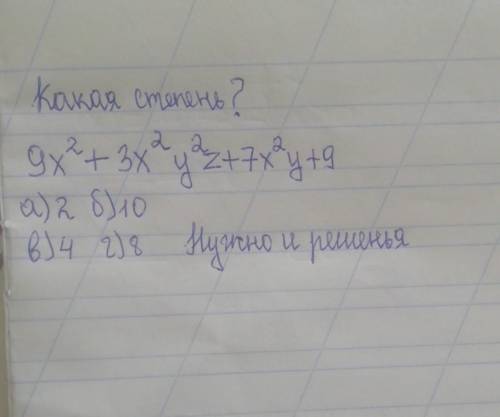 Какая степень?
9x² + 3x²y²z+7x²y+9
а)2 б)10
в)4 г)8 Нужно и решенья